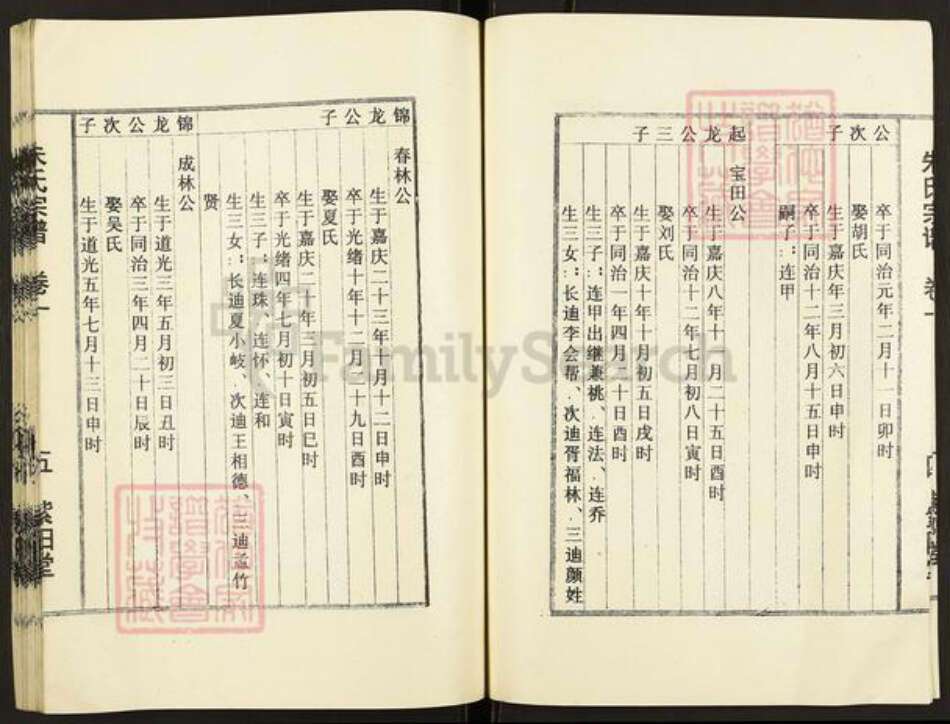 公次子
卒于同治元年二月十一日卯时
娶胡氏
生于嘉庆年三月初六日申时
卒于同治十二年八月十五日申时
嗣子：连甲
起龙公三子
宝田公
生于嘉庆八年十一月二十五日酉时
卒于同治十二年七月初八日寅时
娶刘氏
生于嘉庆十年十月初五日戌时
卒于同治一年四月二十日酉时
生三子：连甲出继兼桃、连法、连乔
生三女：长迪李会帮、次迪胥福林、三迪颜姓
朱氏宗谱 卷一
锦龙公子
春林公
生于嘉庆二十三年十月十二日申时
卒于光绪十年十二月二十九日酉时
娶夏氏
生于嘉庆二十年三月初五日巳时
卒于光绪四年七月初十日寅时
生三子：连珠、连怀、连和
生三女：长迪夏小岐、次迪王相德、三迪孟竹
贤
锦龙公次子
成林公
生于道光三年五月初三日丑时
卒于同治三年四月二十日辰时
娶吴氏
生于道光五年七月十三日申时
朱氏宗谱 卷一 五 紫阳堂
FamilySearch